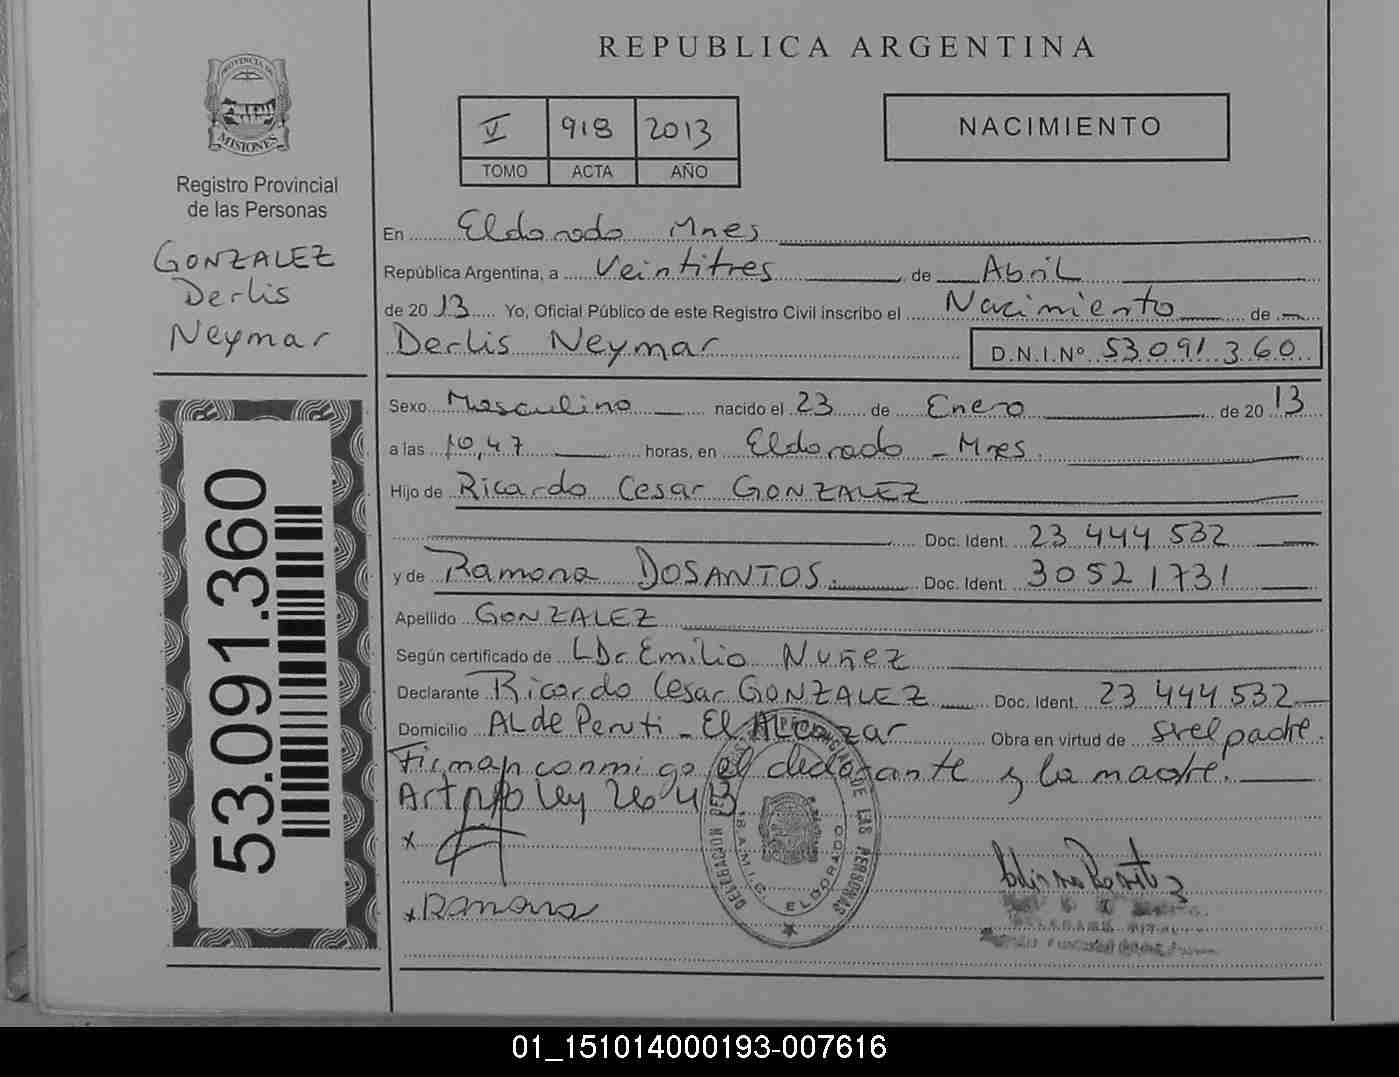 REPUBLICA ARGENTINA
PROVINCIA DE
MISIONES
Registro Provincial
de las Personas
GONZALEZ
Derlis
Neymar
53.091.360
V 918 2013
TOMO ACTA AÑO
NACIMIENTO
En Eldorado Mnes
República Argentina, a Veintitres de Abril
de 2013 Yo, Oficial Público de este Registro Civil inscribo el Nacimiento de
Derlis Neymar D.N.I.Nº 53.091.360
Sexo Masculino nacido el 23 de Enero de 2013
a las 10,47 horas, en Eldorado - Mnes.
Hijo de Ricardo Cesar GONZALEZ
Doc. Ident. 23 444 532
y de Ramona DOSANTOS. Doc. Ident. 30521731
Apellido GONZALEZ
Según certificado de LDc Emilio Nuñez
Declarante Ricardo Cesar GONZALEZ Doc. Ident. 23 444 532
Domicilio AL de Peruti - El Alcazar Obra en virtud de ser el padre.
Firman conmigo el declarante y la madre.
Ley 26413
x
x Ramona
DELEGACION DEL PROVINCIAL DE LAS PERSONAS
ELDORADO
01_151014000193-007616